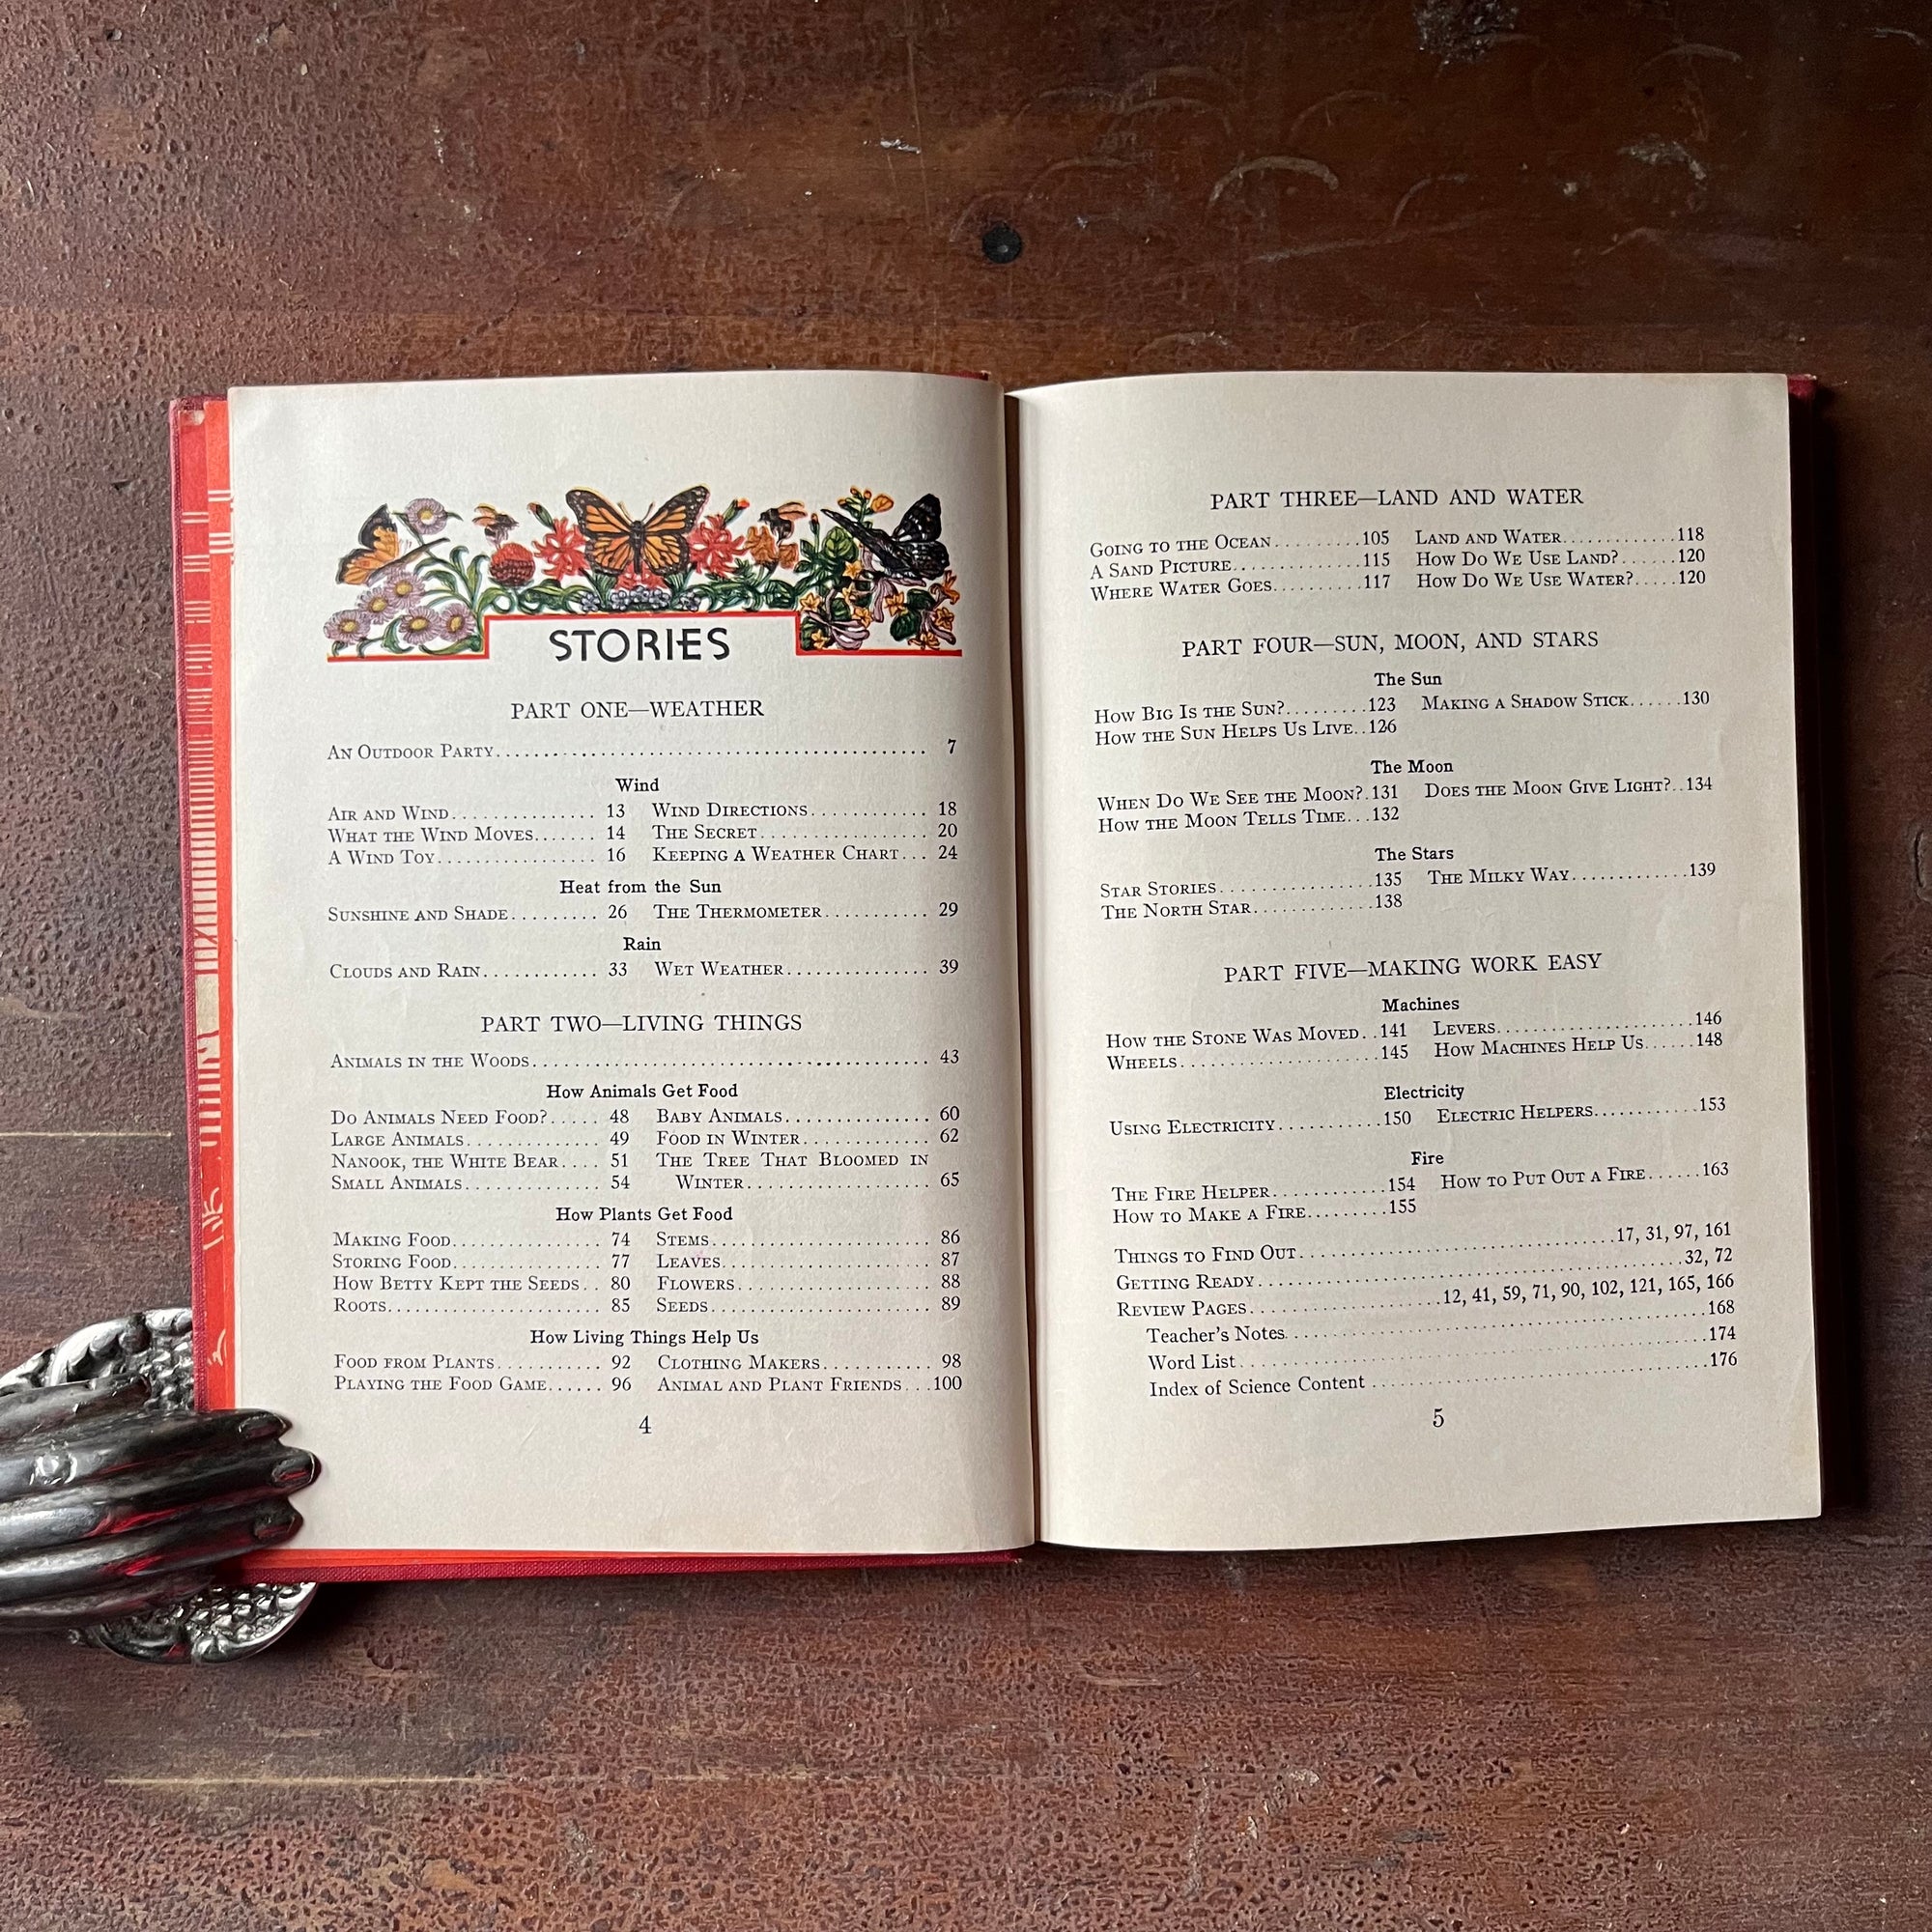 STORIES
PART ONE—WEATHER
AN OUTDOOR PARTY........................................ 7
Wind
AIR AND WIND............... 13 WIND DIRECTIONS............ 18
WHAT THE WIND MOVES....... 14 THE SECRET................. 20
A WIND TOY................. 16 KEEPING A WEATHER CHART... 24
Heat from the Sun
SUNSHINE AND SHADE......... 26 THE THERMOMETER........... 29
Rain
CLOUDS AND RAIN............ 33 WET WEATHER............... 39
PART TWO—LIVING THINGS
ANIMALS IN THE WOODS..................................... 43
How Animals Get Food
DO ANIMALS NEED FOOD?..... 48 BABY ANIMALS............... 60
LARGE ANIMALS.............. 49 FOOD IN WINTER............. 62
NANOOK, THE WHITE BEAR.... 51 THE TREE THAT BLOOMED IN
SMALL ANIMALS.............. 54 WINTER................... 65
How Plants Get Food
MAKING FOOD................ 74 STEMS....................... 86
STORING FOOD............... 77 LEAVES...................... 87
HOW BETTY KEPT THE SEEDS.. 80 FLOWERS.................... 88
ROOTS...................... 85 SEEDS....................... 89
How Living Things Help Us
FOOD FROM PLANTS........... 92 CLOTHING MAKERS........... 98
PLAYING THE FOOD GAME...... 96 ANIMAL AND PLANT FRIENDS...100
4
PART THREE—LAND AND WATER
GOING TO THE OCEAN.........105 LAND AND WATER.............118
A SAND PICTURE..............115 HOW DO WE USE LAND?.......120
WHERE WATER GOES..........117 HOW DO WE USE WATER?.....120
PART FOUR—SUN, MOON, AND STARS
The Sun
HOW BIG IS THE SUN?.........123 MAKING A SHADOW STICK......130
HOW THE SUN HELPS US LIVE..126
The Moon
WHEN DO WE SEE THE MOON?.131 DOES THE MOON GIVE LIGHT?..134
HOW THE MOON TELLS TIME...132
The Stars
STAR STORIES................135 THE MILKY WAY.............139
THE NORTH STAR.............138
PART FIVE—MAKING WORK EASY
Machines
HOW THE STONE WAS MOVED..141 LEVERS......................146
WHEELS.....................145 HOW MACHINES HELP US......148
Electricity
USING ELECTRICITY...........150 ELECTRIC HELPERS............153
Fire
THE FIRE HELPER............154 HOW TO PUT OUT A FIRE......163
HOW TO MAKE A FIRE.........155
THINGS TO FIND OUT....................................17, 31, 97, 161
GETTING READY.................................................32, 72
REVIEW PAGES.....................12, 41, 59, 71, 90, 102, 121, 165, 166
Teacher's Notes................................................168
Word List.....................................................174
Index of Science Content.......................................176
5